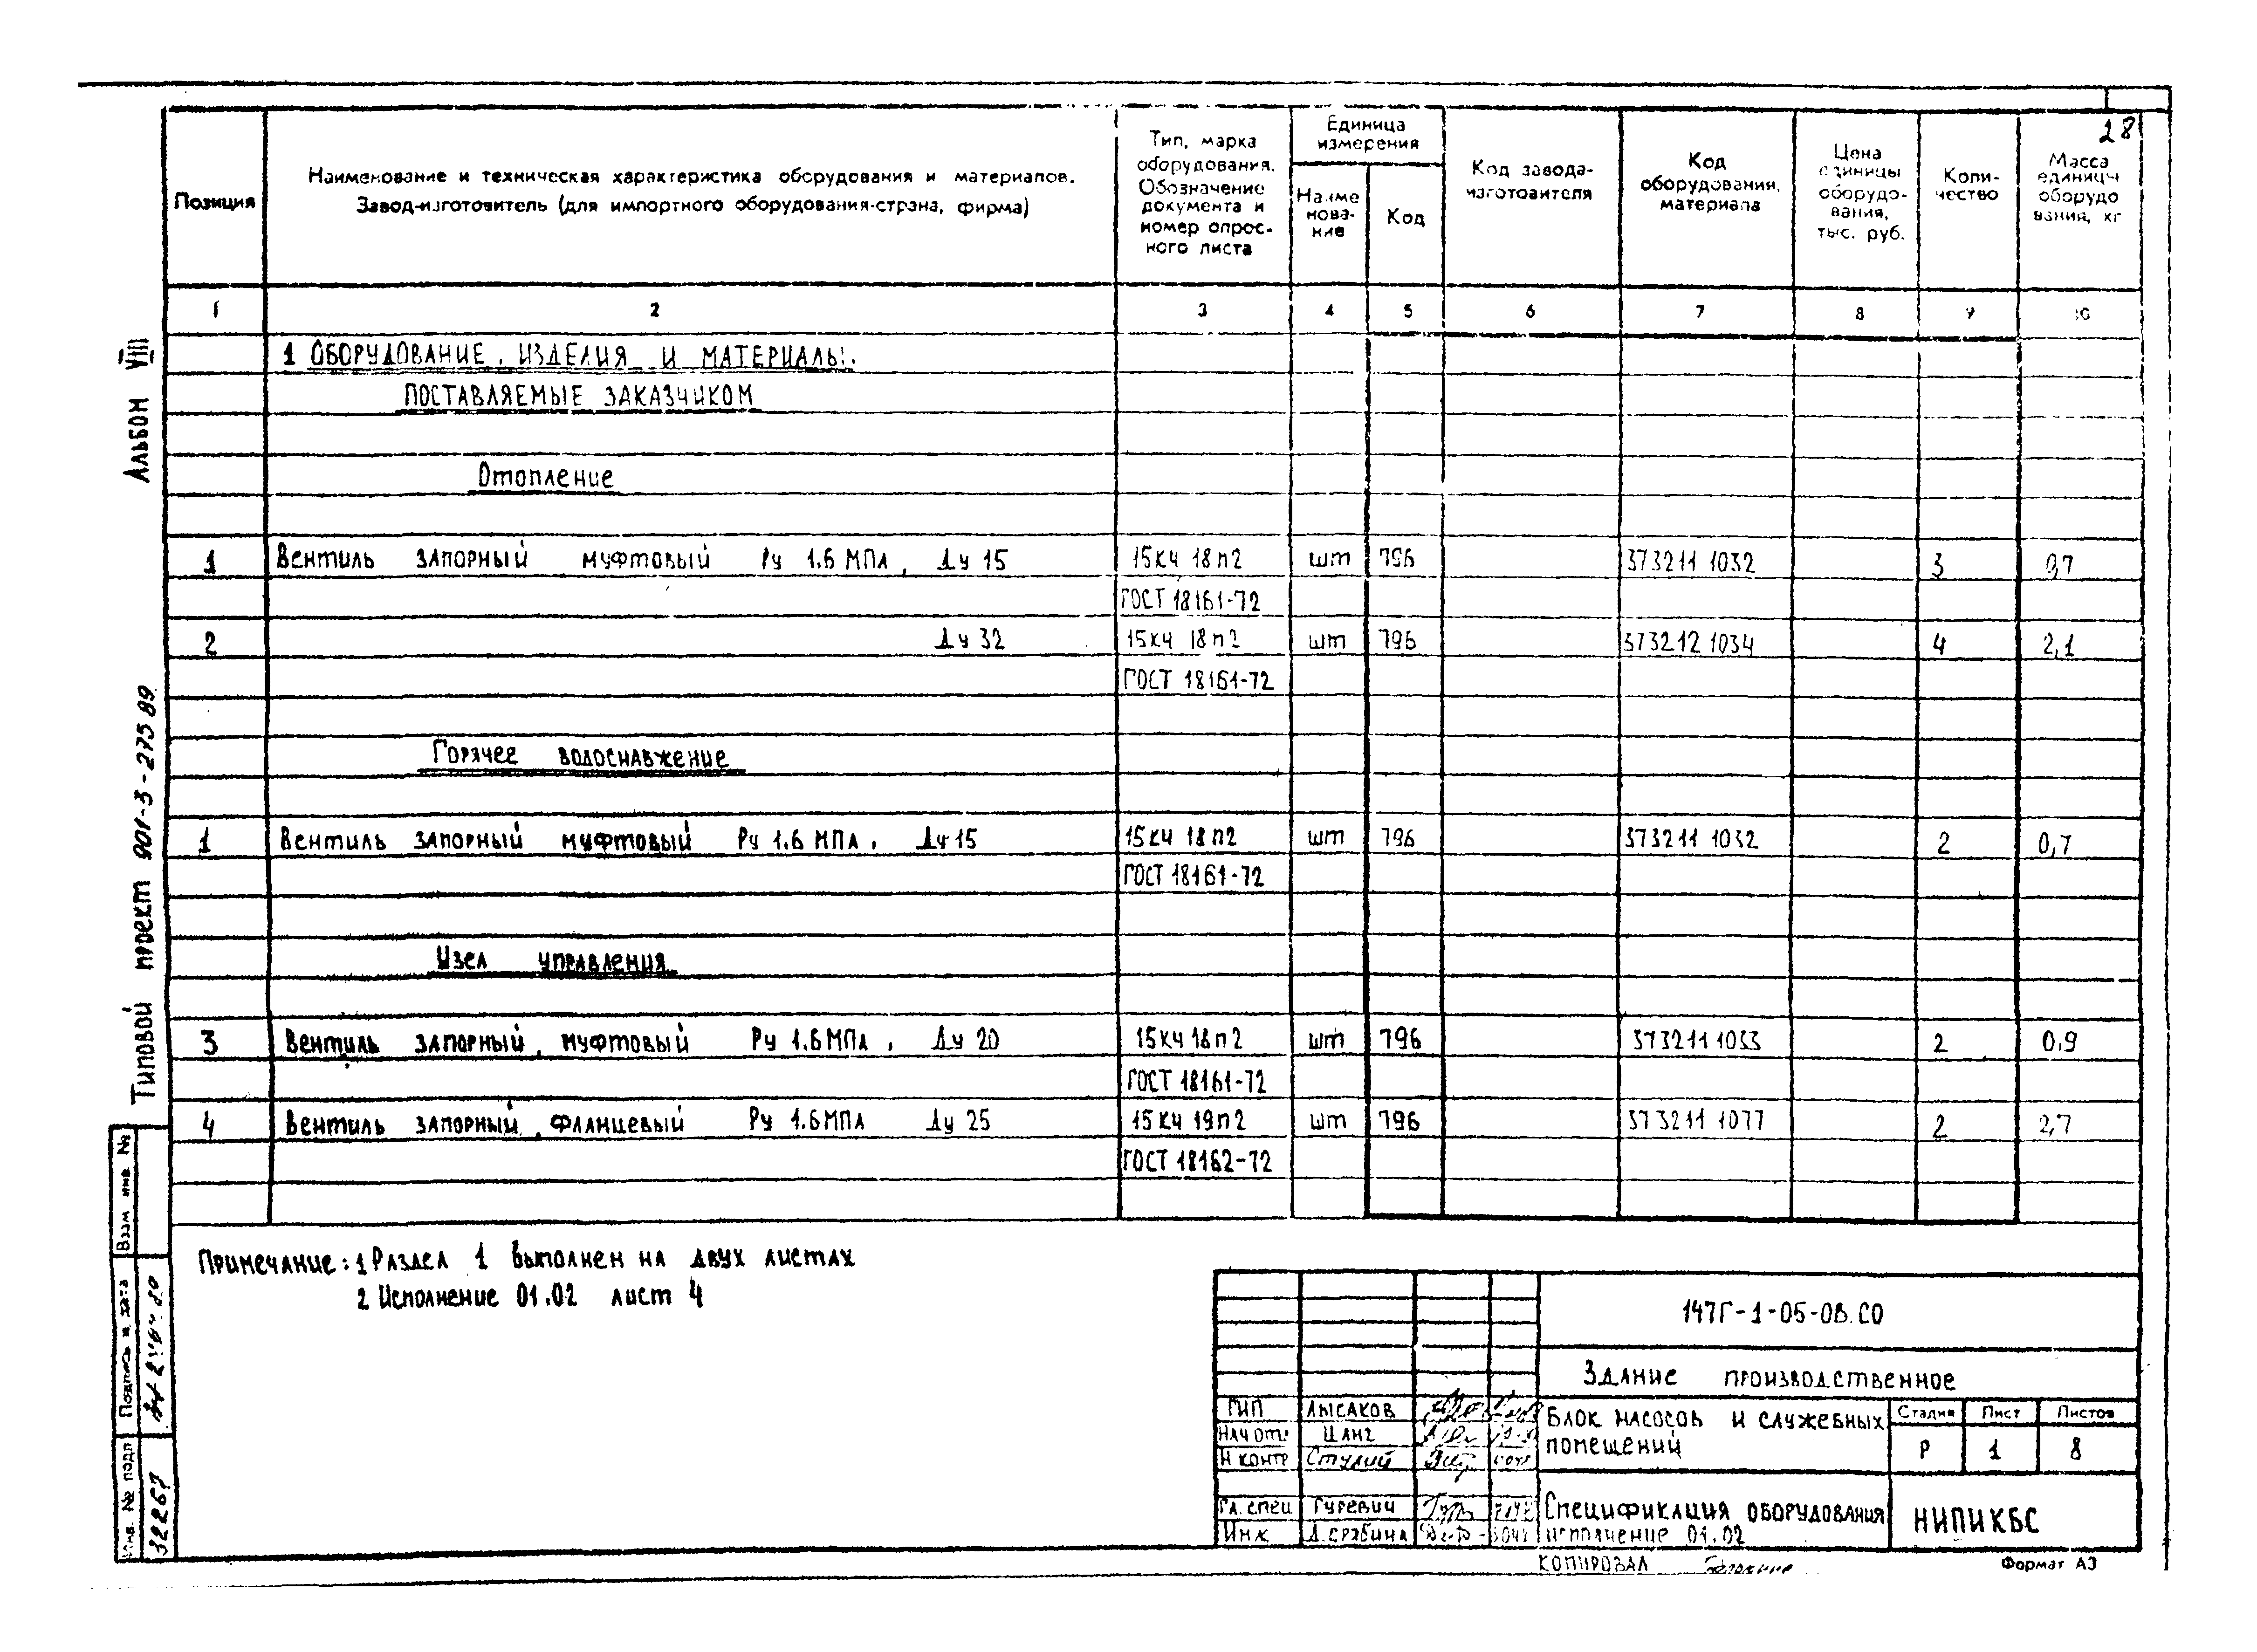 28
Позиция
Наименование и техническая характеристика оборудования и материалов.
Завод-изготовитель (для импортного оборудования-страна, фирма)
Тип, марка
оборудования.
Обозначение
документа и
номер опрос-
ного листа
Единица
измерения
Наиме
нова-
ние
Код
Код завода-
изготовителя
Код
оборудования,
материала
Цена
единицы
оборудо-
вания,
тыс. руб.
Коли-
чество
Масса
единицы
оборудо
вания, кг
1 2 3 4 5 6 7 8 9 10
1 ОБОРУДОВАНИЕ, ИЗДЕЛИЯ И МАТЕРИАЛЫ.
ПОСТАВЛЯЕМЫЕ ЗАКАЗЧИКОМ
Отопление
1 Вентиль запорный муфтовый Ру 1.6 МПа, Ду 15 15кч 18п2 шт 796 373211 1032 3 0,7
ГОСТ 18161-72
2 Ду 32 15кч 18п2 шт 796 373212 1034 4 2,1
ГОСТ 18161-72
Горячее водоснабжение
1 Вентиль запорный муфтовый Ру 1.6 МПа, Ду 15 15кч 18п2 шт 796 373211 1032 2 0,7
ГОСТ 18161-72
Узел управления
3 Вентиль запорный, муфтовый Ру 1.6 МПа, Ду 20 15кч 18п2 шт 796 373211 1033 2 0,9
ГОСТ 18161-72
4 Вентиль запорный, фланцевый Ру 1.6 МПа Ду 25 15кч 19п2 шт 796 373211 1077 2 2,7
ГОСТ 18162-72
Примечание: 1 Раздел 1 выполнен на двух листах
2 Исполнение 01.02 лист 4
Альбом VIII
Типовой проект 901-3-275 89
Взам инв №
Подпись и дата
Инв. № подл
32267
147Г-1-05-ОВ.СО
Здание производственное
ГИП Лысаков
Нач от. Цанг
Н контр Стулий
Гл. спец Гуревич
Инж
Блок насосов и служебных
помещений
Стадия Лист Листов
Р 1 8
Спецификация оборудования
исполнение 01.02
НИПИКБС
Копировал
Формат А3